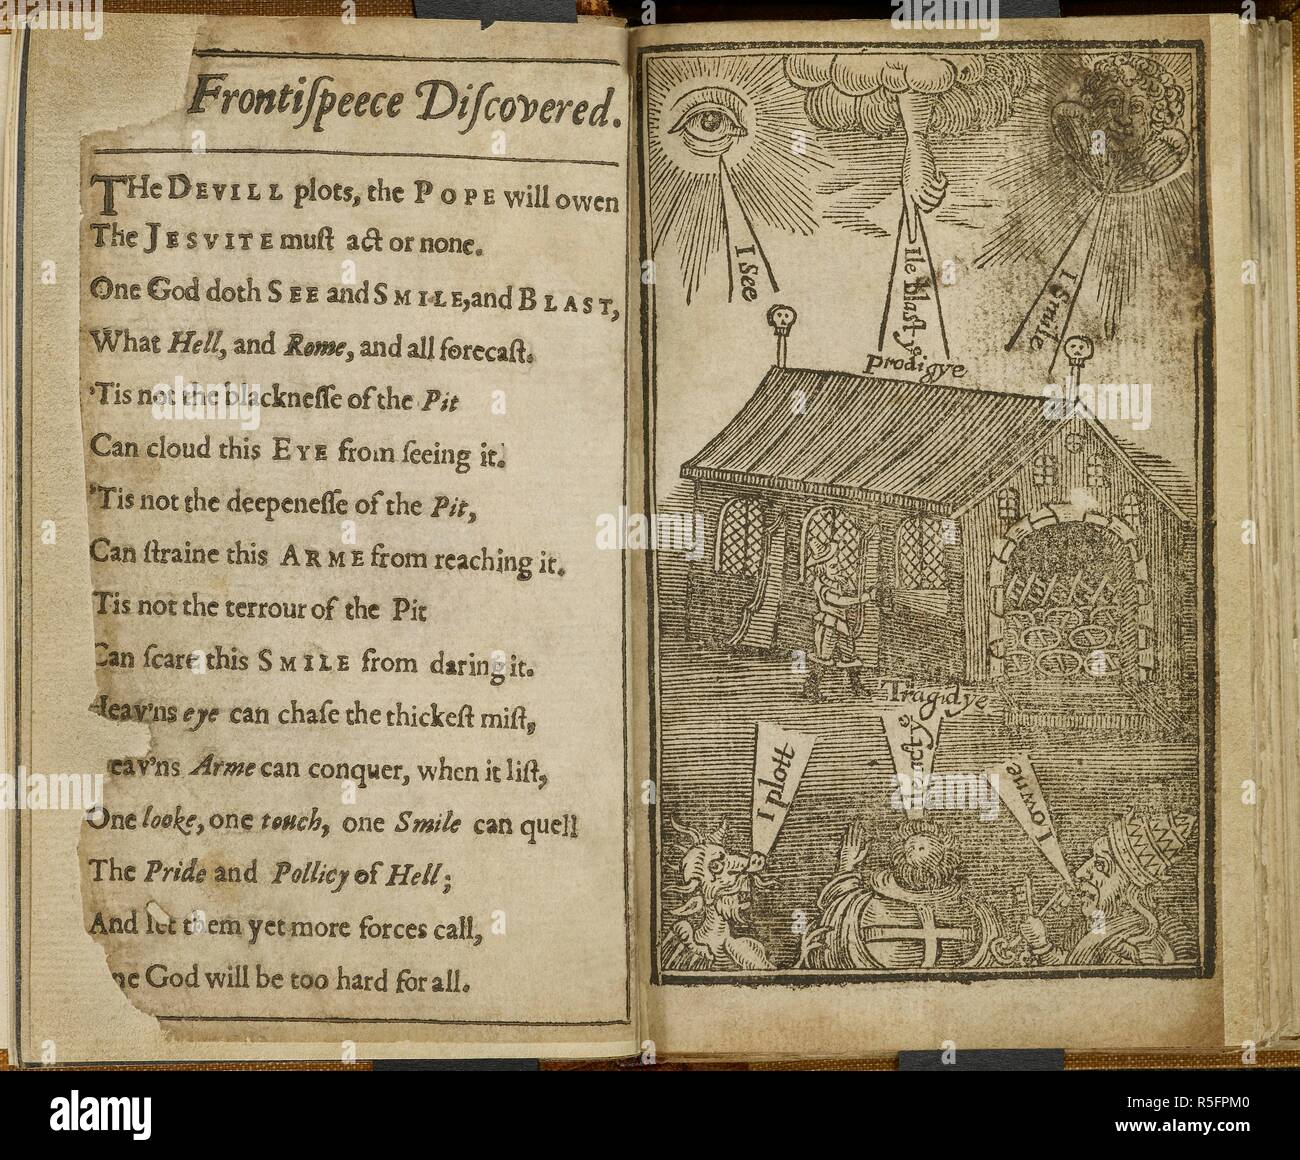 Frontiſpeece Diſcovered.
THe DEVILL plots, the POPE will owen
The JESVITE muſt act or none.
One God doth SEE and SMILE, and BLAST,
What Hell, and Rome, and all forecaſt.
'Tis not the blackneſſe of the Pit
Can cloud this EYE from ſeeing it.
'Tis not the deepeneſſe of the Pit,
Can ſtraine this ARME from reaching it.
Tis not the terrour of the Pit
Can ſcare this SMILE from daring it.
Heav'ns eye can chaſe the thickeſt miſt,
eav'ns Arme can conquer, when it liſt,
One looke, one touch, one Smile can quell
The Pride and Pollicy of Hell;
And let them yet more forces call,
ne God will be too hard for all.
I See
Ile blast yͤ
prodigye
I Smile
Tragidye
I plott
I owne
alamy stock photo
R5FPM0
www.alamy.com